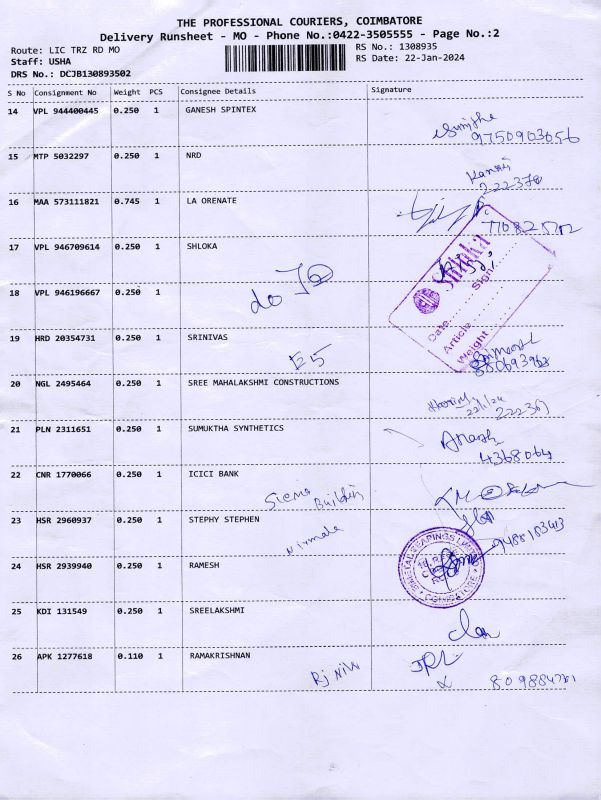 THE PROFESSIONAL COURIERS, COIMBATORE
Delivery Runsheet - MO - Phone No.:0422-3505555 - Page No.:2
Route: LIC TRZ RD MO
RS No.: 1308935
Staff: USHA
RS Date: 22-Jan-2024
DRS No.: DCJB130893502
S No Consignment No Weight PCS Consignee Details Signature
14 VPL 944400445 0.250 1 GANESH SPINTEX
9750903656
15 MTP 5032297 0.250 1 NRD
222370
16 MAA 573111821 0.745 1 LA ORENATE
17 VPL 946709614 0.250 1 SHLOKA
Shloka
Sign
Date
Article
Weight
do
18 VPL 946196667 0.250 1
19 HRD 20354731 0.250 1 SRINIVAS
E5
20 NGL 2495464 0.250 1 SREE MAHALAKSHMI CONSTRUCTIONS
22/1/24
22236
21 PLN 2311651 0.250 1 SUMUKTHA SYNTHETICS
4368064
22 CNR 1770066 0.250 1 ICICI BANK
Building
23 HSR 2960937 0.250 1 STEPHY STEPHEN
Nirmala
9488183413
24 HSR 2939940 0.250 1 RAMESH
COIMBATORE
25 KDI 131549 0.250 1 SREELAKSHMI
26 APK 1277618 0.110 1 RAMAKRISHNAN
Rj Niw